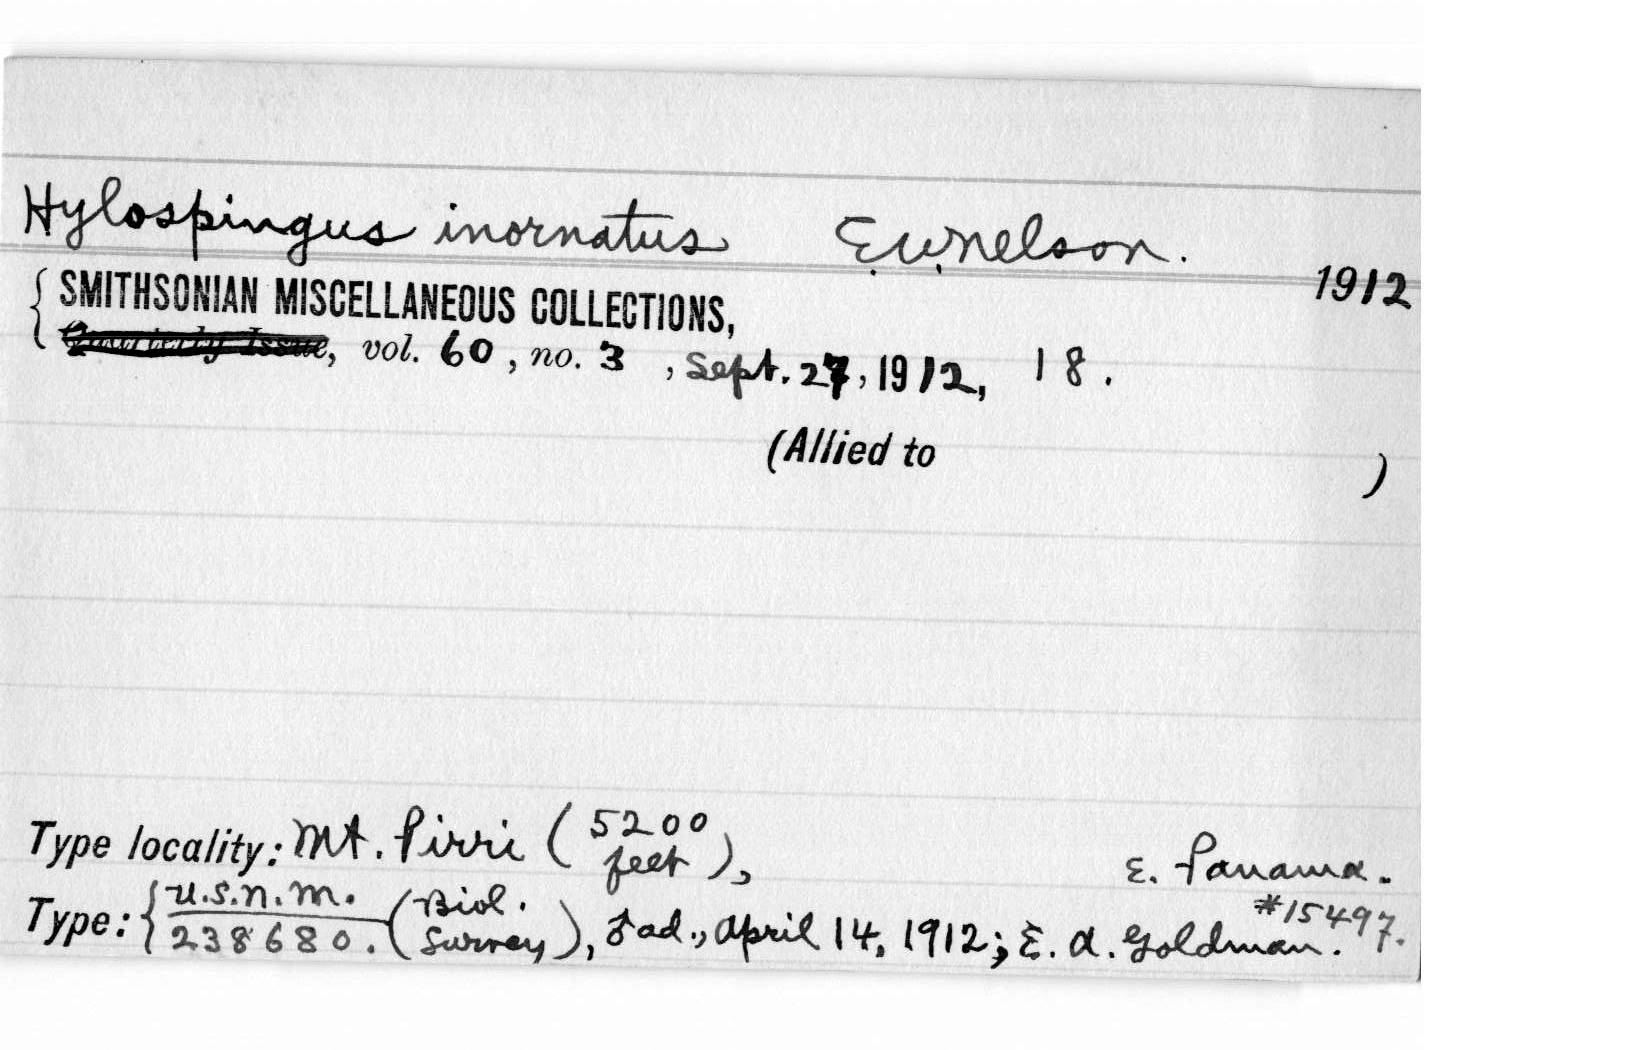 Hylospingus inornatus E.W. Nelson.
1912
{ SMITHSONIAN MISCELLANEOUS COLLECTIONS,
Quarterly Issue, vol. 60, no. 3, Sept. 27, 1912, 18.
(Allied to )
Type locality: Mt. Pirri (5200 feet), E. Panama.
#15497.
Type: { U.S.N.M. 238680. (Biol. Survey), ♂ ad., April 14, 1912; E. A. Goldman.